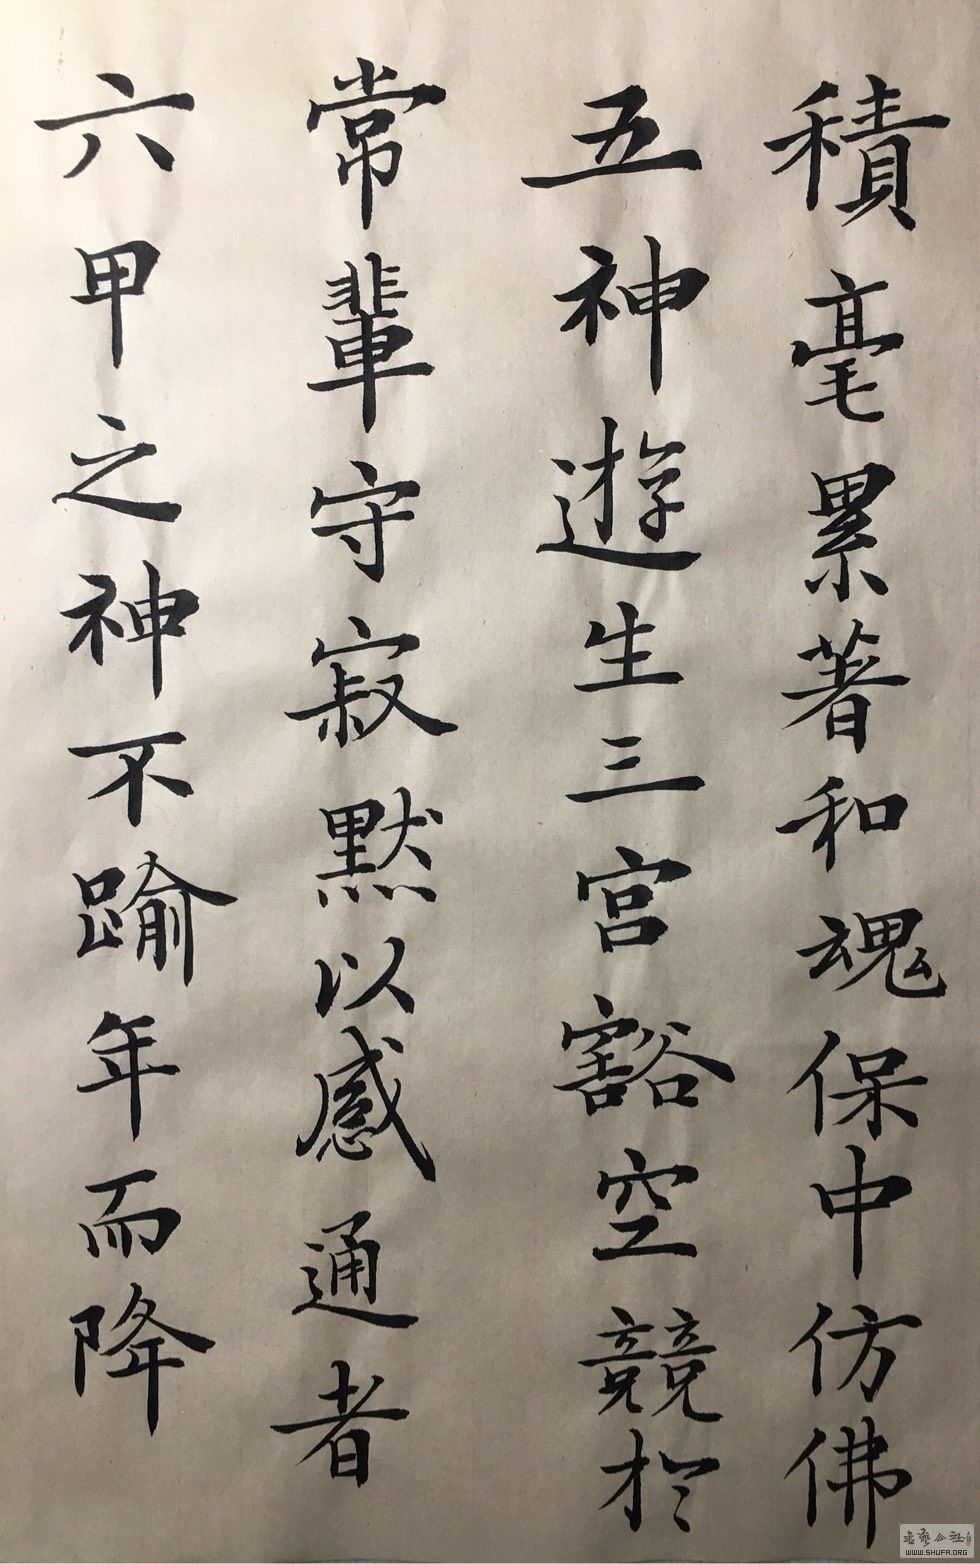 積毫累著和魂保中仿佛
五神遊生三宮豁空競於
常輩守寂默以感通者
六甲之神不踰年而降
WWW.SHUFA.ORG